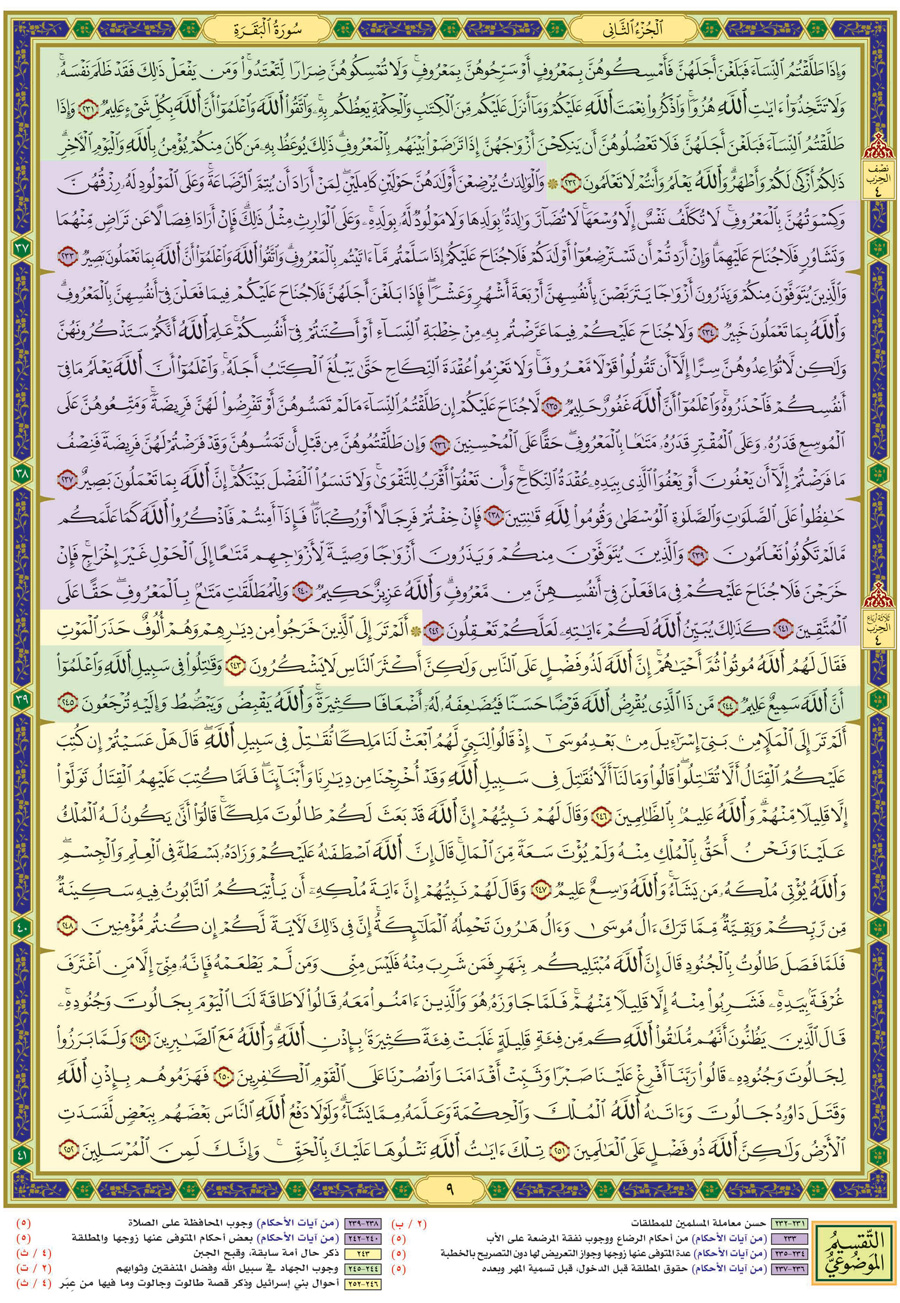 الجزء الثاني
سورة البقرة
وَإِذَا طَلَّقْتُمُ ٱلنِّسَآءَ فَبَلَغْنَ أَجَلَهُنَّ فَأَمْسِكُوهُنَّ بِمَعْرُوفٍ أَوْ سَرِّحُوهُنَّ بِمَعْرُوفٍۚ وَلَا تُمْسِكُوهُنَّ ضِرَارًا لِّتَعْتَدُوا۟ۚ وَمَن يَفْعَلْ ذَٰلِكَ فَقَدْ ظَلَمَ نَفْسَهُۥۚ
وَلَا تَتَّخِذُوٓا۟ ءَايَٰتِ ٱللَّهِ هُزُوًاۚ وَٱذْكُرُوا۟ نِعْمَتَ ٱللَّهِ عَلَيْكُمْ وَمَآ أَنزَلَ عَلَيْكُم مِّنَ ٱلْكِتَٰبِ وَٱلْحِكْمَةِ يَعِظُكُم بِهِۦۚ وَٱتَّقُوا۟ ٱللَّهَ وَٱعْلَمُوٓا۟ أَنَّ ٱللَّهَ بِكُلِّ شَىْءٍ عَلِيمٌ ٢٣١ وَإِذَا
طَلَّقْتُمُ ٱلنِّسَآءَ فَبَلَغْنَ أَجَلَهُنَّ فَلَا تَعْضُلُوهُنَّ أَن يَنكِحْنَ أَزْوَٰجَهُنَّ إِذَا تَرَٰضَوْا۟ بَيْنَهُم بِٱلْمَعْرُوفِۗ ذَٰلِكَ يُوعَظُ بِهِۦ مَن كَانَ مِنكُمْ يُؤْمِنُ بِٱللَّهِ وَٱلْيَوْمِ ٱلْءَاخِرِۗ
نصف الحزب ٤
ذَٰلِكُمْ أَزْكَىٰ لَكُمْ وَأَطْهَرُۗ وَٱللَّهُ يَعْلَمُ وَأَنتُمْ لَا تَعْلَمُونَ ٢٣٢ ۞ وَٱلْوَٰلِدَٰتُ يُرْضِعْنَ أَوْلَٰدَهُنَّ حَوْلَيْنِ كَامِلَيْنِۖ لِمَنْ أَرَادَ أَن يُتِمَّ ٱلرَّضَاعَةَۚ وَعَلَى ٱلْمَوْلُودِ لَهُۥ رِزْقُهُنَّ
وَكِسْوَتُهُنَّ بِٱلْمَعْرُوفِۚ لَا تُكَلَّفُ نَفْسٌ إِلَّا وُسْعَهَاۚ لَا تُضَآرَّ وَٰلِدَةٌۢ بِوَلَدِهَا وَلَا مَوْلُودٌ لَّهُۥ بِوَلَدِهِۦۚ وَعَلَى ٱلْوَارِثِ مِثْلُ ذَٰلِكَۗ فَإِنْ أَرَادَا فِصَالًا عَن تَرَاضٍ مِّنْهُمَا
٣٧
وَتَشَاوُرٍ فَلَا جُنَاحَ عَلَيْهِمَاۗ وَإِنْ أَرَدتُّمْ أَن تَسْتَرْضِعُوٓا۟ أَوْلَٰدَكُمْ فَلَا جُنَاحَ عَلَيْكُمْ إِذَا سَلَّمْتُم مَّآ ءَاتَيْتُم بِٱلْمَعْرُوفِۗ وَٱتَّقُوا۟ ٱللَّهَ وَٱعْلَمُوٓا۟ أَنَّ ٱللَّهَ بِمَا تَعْمَلُونَ بَصِيرٌ ٢٣٣
وَٱلَّذِينَ يُتَوَفَّوْنَ مِنكُمْ وَيَذَرُونَ أَزْوَٰجًا يَتَرَبَّصْنَ بِأَنفُسِهِنَّ أَرْبَعَةَ أَشْهُرٍ وَعَشْرًاۖ فَإِذَا بَلَغْنَ أَجَلَهُنَّ فَلَا جُنَاحَ عَلَيْكُمْ فِيمَا فَعَلْنَ فِىٓ أَنفُسِهِنَّ بِٱلْمَعْرُوفِۗ
وَٱللَّهُ بِمَا تَعْمَلُونَ خَبِيرٌ ٢٣٤ وَلَا جُنَاحَ عَلَيْكُمْ فِيمَا عَرَّضْتُم بِهِۦ مِنْ خِطْبَةِ ٱلنِّسَآءِ أَوْ أَكْنَنتُمْ فِىٓ أَنفُسِكُمْۚ عَلِمَ ٱللَّهُ أَنَّكُمْ سَتَذْكُرُونَهُنَّ
وَلَٰكِن لَّا تُوَاعِدُوهُنَّ سِرًّا إِلَّآ أَن تَقُولُوا۟ قَوْلًا مَّعْرُوفًاۚ وَلَا تَعْزِمُوا۟ عُقْدَةَ ٱلنِّكَاحِ حَتَّىٰ يَبْلُغَ ٱلْكِتَٰبُ أَجَلَهُۥۚ وَٱعْلَمُوٓا۟ أَنَّ ٱللَّهَ يَعْلَمُ مَا فِىٓ
أَنفُسِكُمْ فَٱحْذَرُوهُۚ وَٱعْلَمُوٓا۟ أَنَّ ٱللَّهَ غَفُورٌ حَلِيمٌ ٢٣٥ لَّا جُنَاحَ عَلَيْكُمْ إِن طَلَّقْتُمُ ٱلنِّسَآءَ مَا لَمْ تَمَسُّوهُنَّ أَوْ تَفْرِضُوا۟ لَهُنَّ فَرِيضَةًۚ وَمَتِّعُوهُنَّ عَلَى
ٱلْمُوسِعِ قَدَرُهُۥ وَعَلَى ٱلْمُقْتِرِ قَدَرُهُۥ مَتَٰعًۢا بِٱلْمَعْرُوفِۖ حَقًّا عَلَى ٱلْمُحْسِنِينَ ٢٣٦ وَإِن طَلَّقْتُمُوهُنَّ مِن قَبْلِ أَن تَمَسُّوهُنَّ وَقَدْ فَرَضْتُمْ لَهُنَّ فَرِيضَةً فَنِصْفُ
٣٨
مَا فَرَضْتُمْ إِلَّآ أَن يَعْفُونَ أَوْ يَعْفُوَا۟ ٱلَّذِى بِيَدِهِۦ عُقْدَةُ ٱلنِّكَاحِۚ وَأَن تَعْفُوٓا۟ أَقْرَبُ لِلتَّقْوَىٰۚ وَلَا تَنسَوُا۟ ٱلْفَضْلَ بَيْنَكُمْۚ إِنَّ ٱللَّهَ بِمَا تَعْمَلُونَ بَصِيرٌ ٢٣٧
حَٰفِظُوا۟ عَلَى ٱلصَّلَوَٰتِ وَٱلصَّلَوٰةِ ٱلْوُسْطَىٰ وَقُومُوا۟ لِلَّهِ قَٰنِتِينَ ٢٣٨ فَإِنْ خِفْتُمْ فَرِجَالًا أَوْ رُكْبَانًاۖ فَإِذَآ أَمِنتُمْ فَٱذْكُرُوا۟ ٱللَّهَ كَمَا عَلَّمَكُم
مَّا لَمْ تَكُونُوا۟ تَعْلَمُونَ ٢٣٩ وَٱلَّذِينَ يُتَوَفَّوْنَ مِنكُمْ وَيَذَرُونَ أَزْوَٰجًا وَصِيَّةً لِّأَزْوَٰجِهِم مَّتَٰعًا إِلَى ٱلْحَوْلِ غَيْرَ إِخْرَاجٍۚ فَإِنْ
خَرَجْنَ فَلَا جُنَاحَ عَلَيْكُمْ فِى مَا فَعَلْنَ فِىٓ أَنفُسِهِنَّ مِن مَّعْرُوفٍۗ وَٱللَّهُ عَزِيزٌ حَكِيمٌ ٢٤٠ وَلِلْمُطَلَّقَٰتِ مَتَٰعٌۢ بِٱلْمَعْرُوفِۖ حَقًّا عَلَى
ثلاثة أرباع الحزب ٤
ٱلْمُتَّقِينَ ٢٤١ كَذَٰلِكَ يُبَيِّنُ ٱللَّهُ لَكُمْ ءَايَٰتِهِۦ لَعَلَّكُمْ تَعْقِلُونَ ٢٤٢ ۞ أَلَمْ تَرَ إِلَى ٱلَّذِينَ خَرَجُوا۟ مِن دِيَٰرِهِمْ وَهُمْ أُلُوفٌ حَذَرَ ٱلْمَوْتِ
فَقَالَ لَهُمُ ٱللَّهُ مُوتُوا۟ ثُمَّ أَحْيَٰهُمْۚ إِنَّ ٱللَّهَ لَذُو فَضْلٍ عَلَى ٱلنَّاسِ وَلَٰكِنَّ أَكْثَرَ ٱلنَّاسِ لَا يَشْكُرُونَ ٢٤٣ وَقَٰتِلُوا۟ فِى سَبِيلِ ٱللَّهِ وَٱعْلَمُوٓا۟
٣٩
أَنَّ ٱللَّهَ سَمِيعٌ عَلِيمٌ ٢٤٤ مَّن ذَا ٱلَّذِى يُقْرِضُ ٱللَّهَ قَرْضًا حَسَنًا فَيُضَٰعِفَهُۥ لَهُۥٓ أَضْعَافًا كَثِيرَةًۚ وَٱللَّهُ يَقْبِضُ وَيَبْصُۜطُ وَإِلَيْهِ تُرْجَعُونَ ٢٤٥
أَلَمْ تَرَ إِلَى ٱلْمَلَإِ مِنۢ بَنِىٓ إِسْرَٰٓءِيلَ مِنۢ بَعْدِ مُوسَىٰٓ إِذْ قَالُوا۟ لِنَبِىٍّ لَّهُمُ ٱبْعَثْ لَنَا مَلِكًا نُّقَٰتِلْ فِى سَبِيلِ ٱللَّهِۖ قَالَ هَلْ عَسَيْتُمْ إِن كُتِبَ
عَلَيْكُمُ ٱلْقِتَالُ أَلَّا تُقَٰتِلُوا۟ۖ قَالُوا۟ وَمَا لَنَآ أَلَّا نُقَٰتِلَ فِى سَبِيلِ ٱللَّهِ وَقَدْ أُخْرِجْنَا مِن دِيَٰرِنَا وَأَبْنَآئِنَاۖ فَلَمَّا كُتِبَ عَلَيْهِمُ ٱلْقِتَالُ تَوَلَّوْا۟
إِلَّا قَلِيلًا مِّنْهُمْۗ وَٱللَّهُ عَلِيمٌۢ بِٱلظَّٰلِمِينَ ٢٤٦ وَقَالَ لَهُمْ نَبِيُّهُمْ إِنَّ ٱللَّهَ قَدْ بَعَثَ لَكُمْ طَالُوتَ مَلِكًاۚ قَالُوٓا۟ أَنَّىٰ يَكُونُ لَهُ ٱلْمُلْكُ
عَلَيْنَا وَنَحْنُ أَحَقُّ بِٱلْمُلْكِ مِنْهُ وَلَمْ يُؤْتَ سَعَةً مِّنَ ٱلْمَالِۚ قَالَ إِنَّ ٱللَّهَ ٱصْطَفَىٰهُ عَلَيْكُمْ وَزَادَهُۥ بَسْطَةً فِى ٱلْعِلْمِ وَٱلْجِسْمِۖ
وَٱللَّهُ يُؤْتِى مُلْكَهُۥ مَن يَشَآءُۚ وَٱللَّهُ وَٰسِعٌ عَلِيمٌ ٢٤٧ وَقَالَ لَهُمْ نَبِيُّهُمْ إِنَّ ءَايَةَ مُلْكِهِۦٓ أَن يَأْتِيَكُمُ ٱلتَّابُوتُ فِيهِ سَكِينَةٌ
٤٠
مِّن رَّبِّكُمْ وَبَقِيَّةٌ مِّمَّا تَرَكَ ءَالُ مُوسَىٰ وَءَالُ هَٰرُونَ تَحْمِلُهُ ٱلْمَلَٰٓئِكَةُۚ إِنَّ فِى ذَٰلِكَ لَءَايَةً لَّكُمْ إِن كُنتُم مُّؤْمِنِينَ ٢٤٨
فَلَمَّا فَصَلَ طَالُوتُ بِٱلْجُنُودِ قَالَ إِنَّ ٱللَّهَ مُبْتَلِيكُم بِنَهَرٍ فَمَن شَرِبَ مِنْهُ فَلَيْسَ مِنِّى وَمَن لَّمْ يَطْعَمْهُ فَإِنَّهُۥ مِنِّىٓ إِلَّا مَنِ ٱغْتَرَفَ
غُرْفَةًۢ بِيَدِهِۦۚ فَشَرِبُوا۟ مِنْهُ إِلَّا قَلِيلًا مِّنْهُمْۚ فَلَمَّا جَاوَزَهُۥ هُوَ وَٱلَّذِينَ ءَامَنُوا۟ مَعَهُۥ قَالُوا۟ لَا طَاقَةَ لَنَا ٱلْيَوْمَ بِجَالُوتَ وَجُنُودِهِۦۚ
قَالَ ٱلَّذِينَ يَظُنُّونَ أَنَّهُم مُّلَٰقُوا۟ ٱللَّهِ كَم مِّن فِئَةٍ قَلِيلَةٍ غَلَبَتْ فِئَةً كَثِيرَةًۢ بِإِذْنِ ٱللَّهِۗ وَٱللَّهُ مَعَ ٱلصَّٰبِرِينَ ٢٤٩ وَلَمَّا بَرَزُوا۟
لِجَالُوتَ وَجُنُودِهِۦ قَالُوا۟ رَبَّنَآ أَفْرِغْ عَلَيْنَا صَبْرًا وَثَبِّتْ أَقْدَامَنَا وَٱنصُرْنَا عَلَى ٱلْقَوْمِ ٱلْكَٰفِرِينَ ٢٥٠ فَهَزَمُوهُم بِإِذْنِ ٱللَّهِ
وَقَتَلَ دَاوُۥدُ جَالُوتَ وَءَاتَىٰهُ ٱللَّهُ ٱلْمُلْكَ وَٱلْحِكْمَةَ وَعَلَّمَهُۥ مِمَّا يَشَآءُۗ وَلَوْلَا دَفْعُ ٱللَّهِ ٱلنَّاسَ بَعْضَهُم بِبَعْضٍ لَّفَسَدَتِ
٤١
ٱلْأَرْضُ وَلَٰكِنَّ ٱللَّهَ ذُو فَضْلٍ عَلَى ٱلْعَٰلَمِينَ ٢٥١ تِلْكَ ءَايَٰتُ ٱللَّهِ نَتْلُوهَا عَلَيْكَ بِٱلْحَقِّۚ وَإِنَّكَ لَمِنَ ٱلْمُرْسَلِينَ ٢٥٢
٩
التقسيم الموضوعي
٢٣١-٢٣٢ حسن معاملة المسلمين للمطلقات (٢ / ب)
٢٣٣ (من آيات الأحكام) من أحكام الرضاع ووجوب نفقة المرضعة على الأب (٥)
٢٣٤-٢٣٥ (من آيات الأحكام) عدة المتوفى عنها زوجها وجواز التعريض لها دون التصريح بالخطبة (٥)
٢٣٦-٢٣٧ (من آيات الأحكام) حقوق المطلقة قبل الدخول، قبل تسمية المهر وبعده (٥)
٢٣٨-٢٣٩ (من آيات الأحكام) وجوب المحافظة على الصلاة (٥)
٢٤٠-٢٤٢ (من آيات الأحكام) بعض أحكام المتوفى عنها زوجها والمطلقة (٥)
٢٤٣ ذكر حال أمة سابقة، وقبح الجبن (٤ / ث)
٢٤٤-٢٤٥ وجوب الجهاد في سبيل الله وفضل المنفقين وثوابهم (٢ / ت)
٢٤٦-٢٥٢ أحوال بني إسرائيل وذكر قصة طالوت وجالوت وما فيها من عبر (٤ / ث)